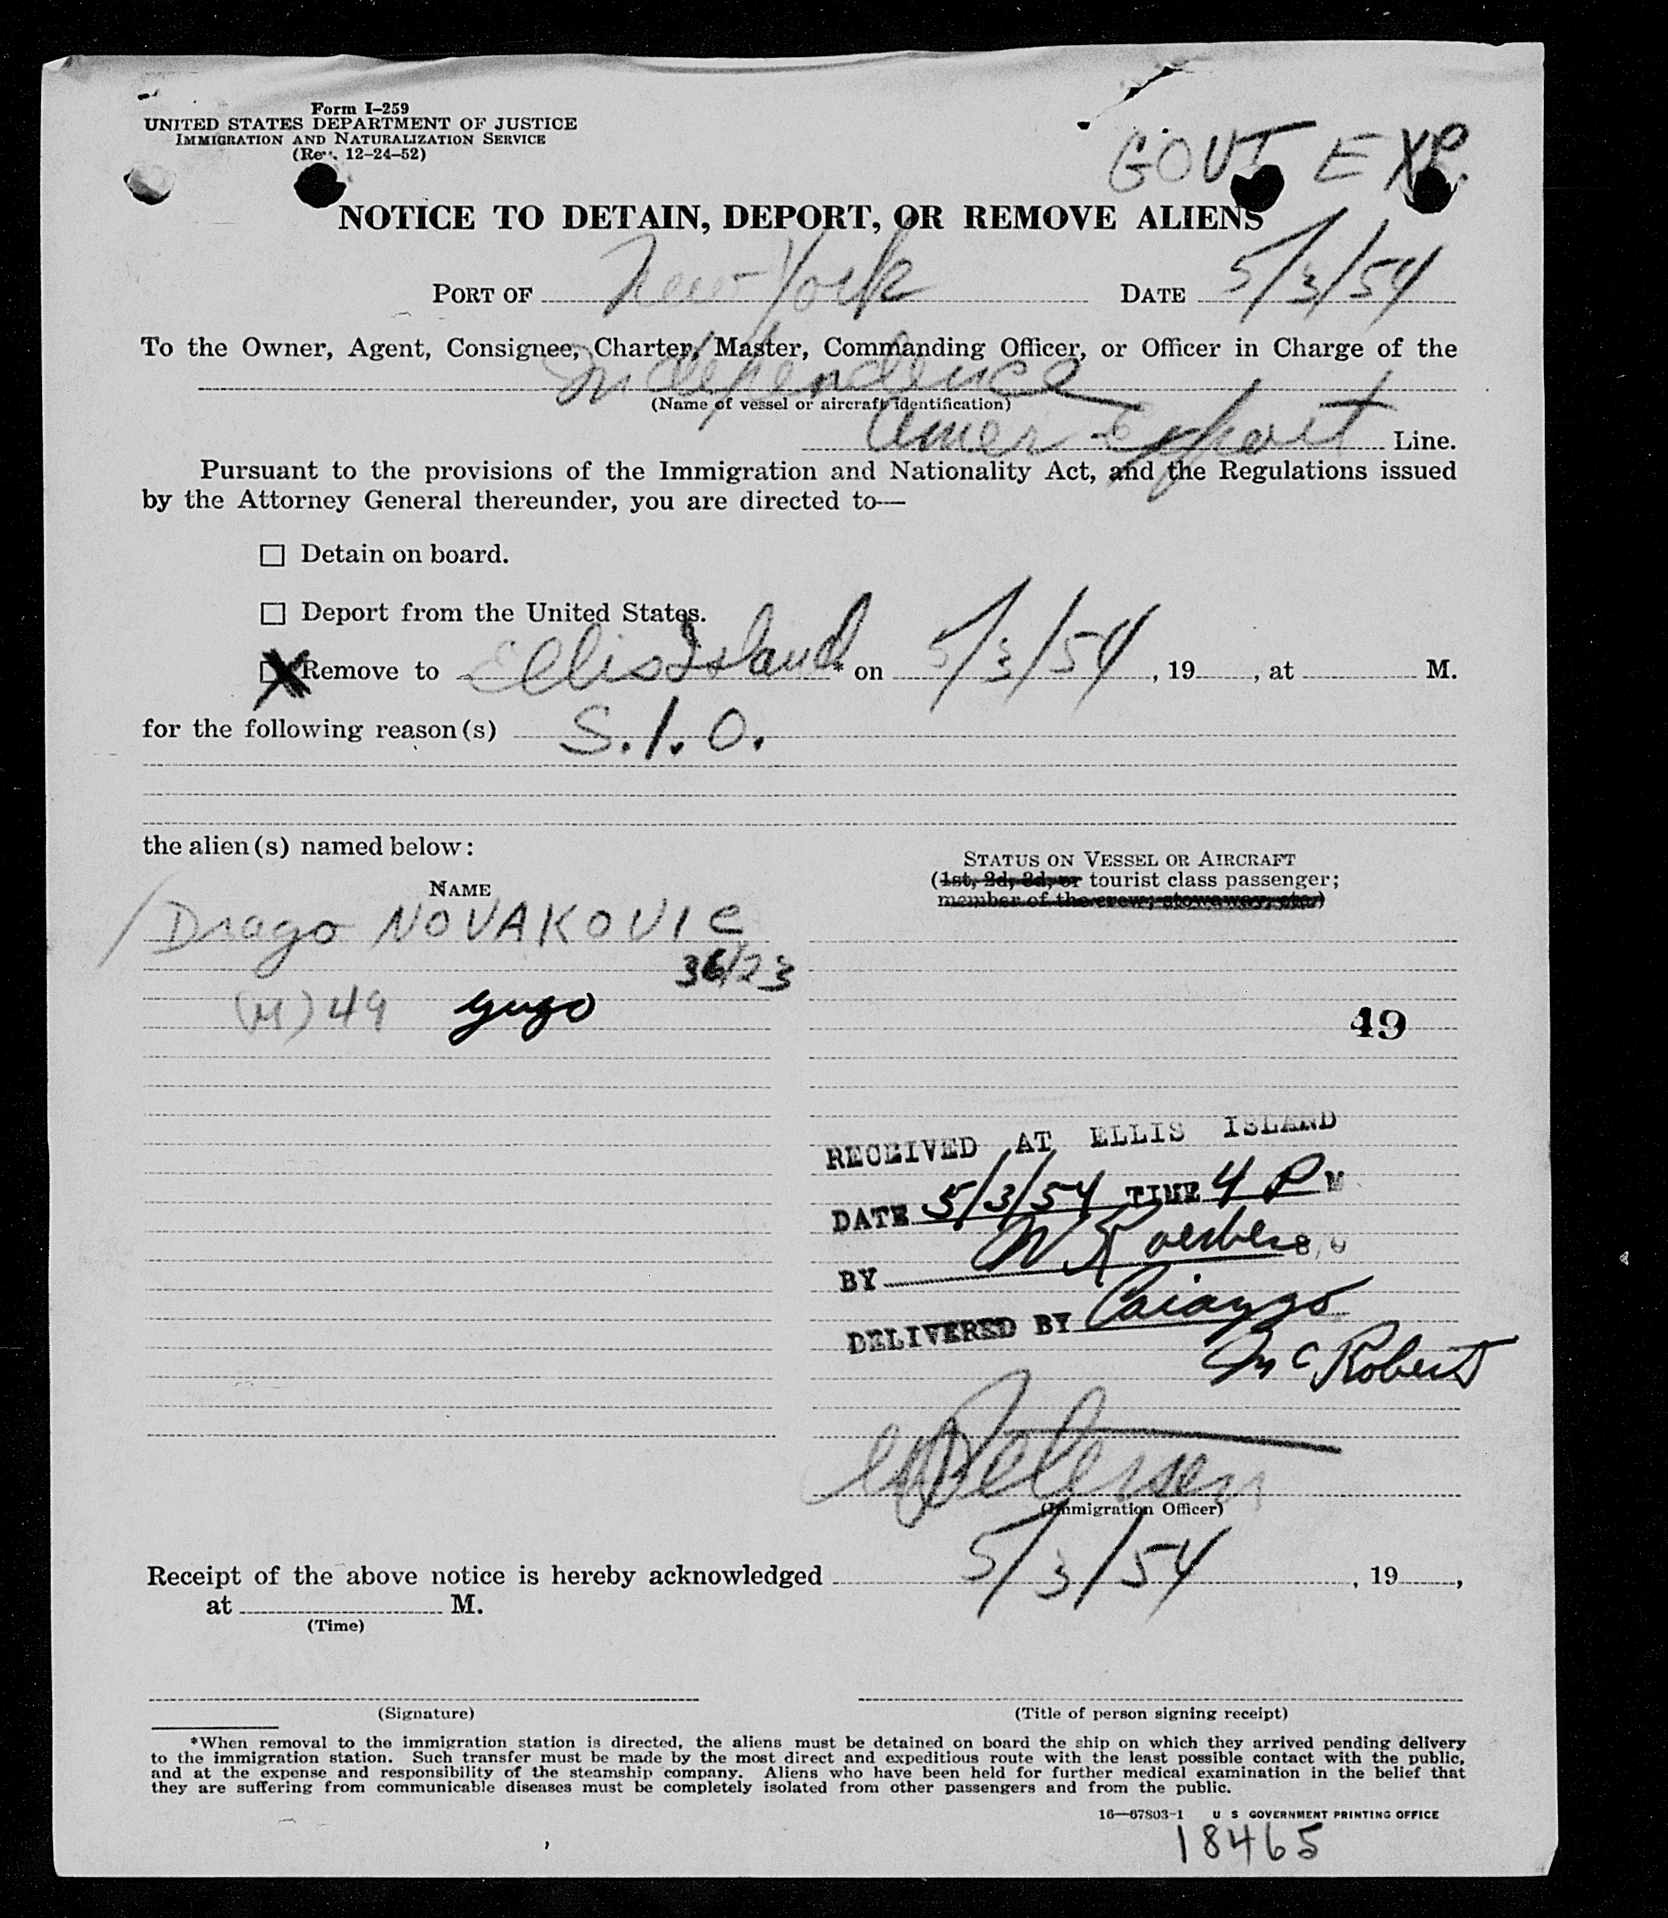 Form I-259
UNITED STATES DEPARTMENT OF JUSTICE
IMMIGRATION AND NATURALIZATION SERVICE
(Rev. 12-24-52)
GOVT EXP.
NOTICE TO DETAIN, DEPORT, OR REMOVE ALIENS
PORT OF New York DATE 5/3/54
To the Owner, Agent, Consignee, Charter, Master, Commanding Officer, or Officer in Charge of the
Independence
(Name of vessel or aircraft identification)
Amer Export Line.
Pursuant to the provisions of the Immigration and Nationality Act, and the Regulations issued
by the Attorney General thereunder, you are directed to—
Detain on board.
Deport from the United States.
X Remove to Ellis Island * on 5/3/54, 19 , at M.
for the following reason(s) S.I.O.
the alien(s) named below:
STATUS ON VESSEL OR AIRCRAFT
(1st, 2d, 3d, or tourist class passenger;
member of the crew; stowaway, etc.)
NAME
/ Drago NOVAKOVIC
36/23
(M) 49 yugo
49
RECEIVED AT ELLIS ISLAND
DATE 5/3/54 TIME 4 P M
BY W
DELIVERED BY
McRobert
Petersen
(Immigration Officer)
5/3/54
Receipt of the above notice is hereby acknowledged , 19 ,
at M.
(Time)
(Signature) (Title of person signing receipt)
*When removal to the immigration station is directed, the aliens must be detained on board the ship on which they arrived pending delivery
to the immigration station. Such transfer must be made by the most direct and expeditious route with the least possible contact with the public,
and at the expense and responsibility of the steamship company. Aliens who have been held for further medical examination in the belief that
they are suffering from communicable diseases must be completely isolated from other passengers and from the public.
16—67803-1 U S GOVERNMENT PRINTING OFFICE
18465